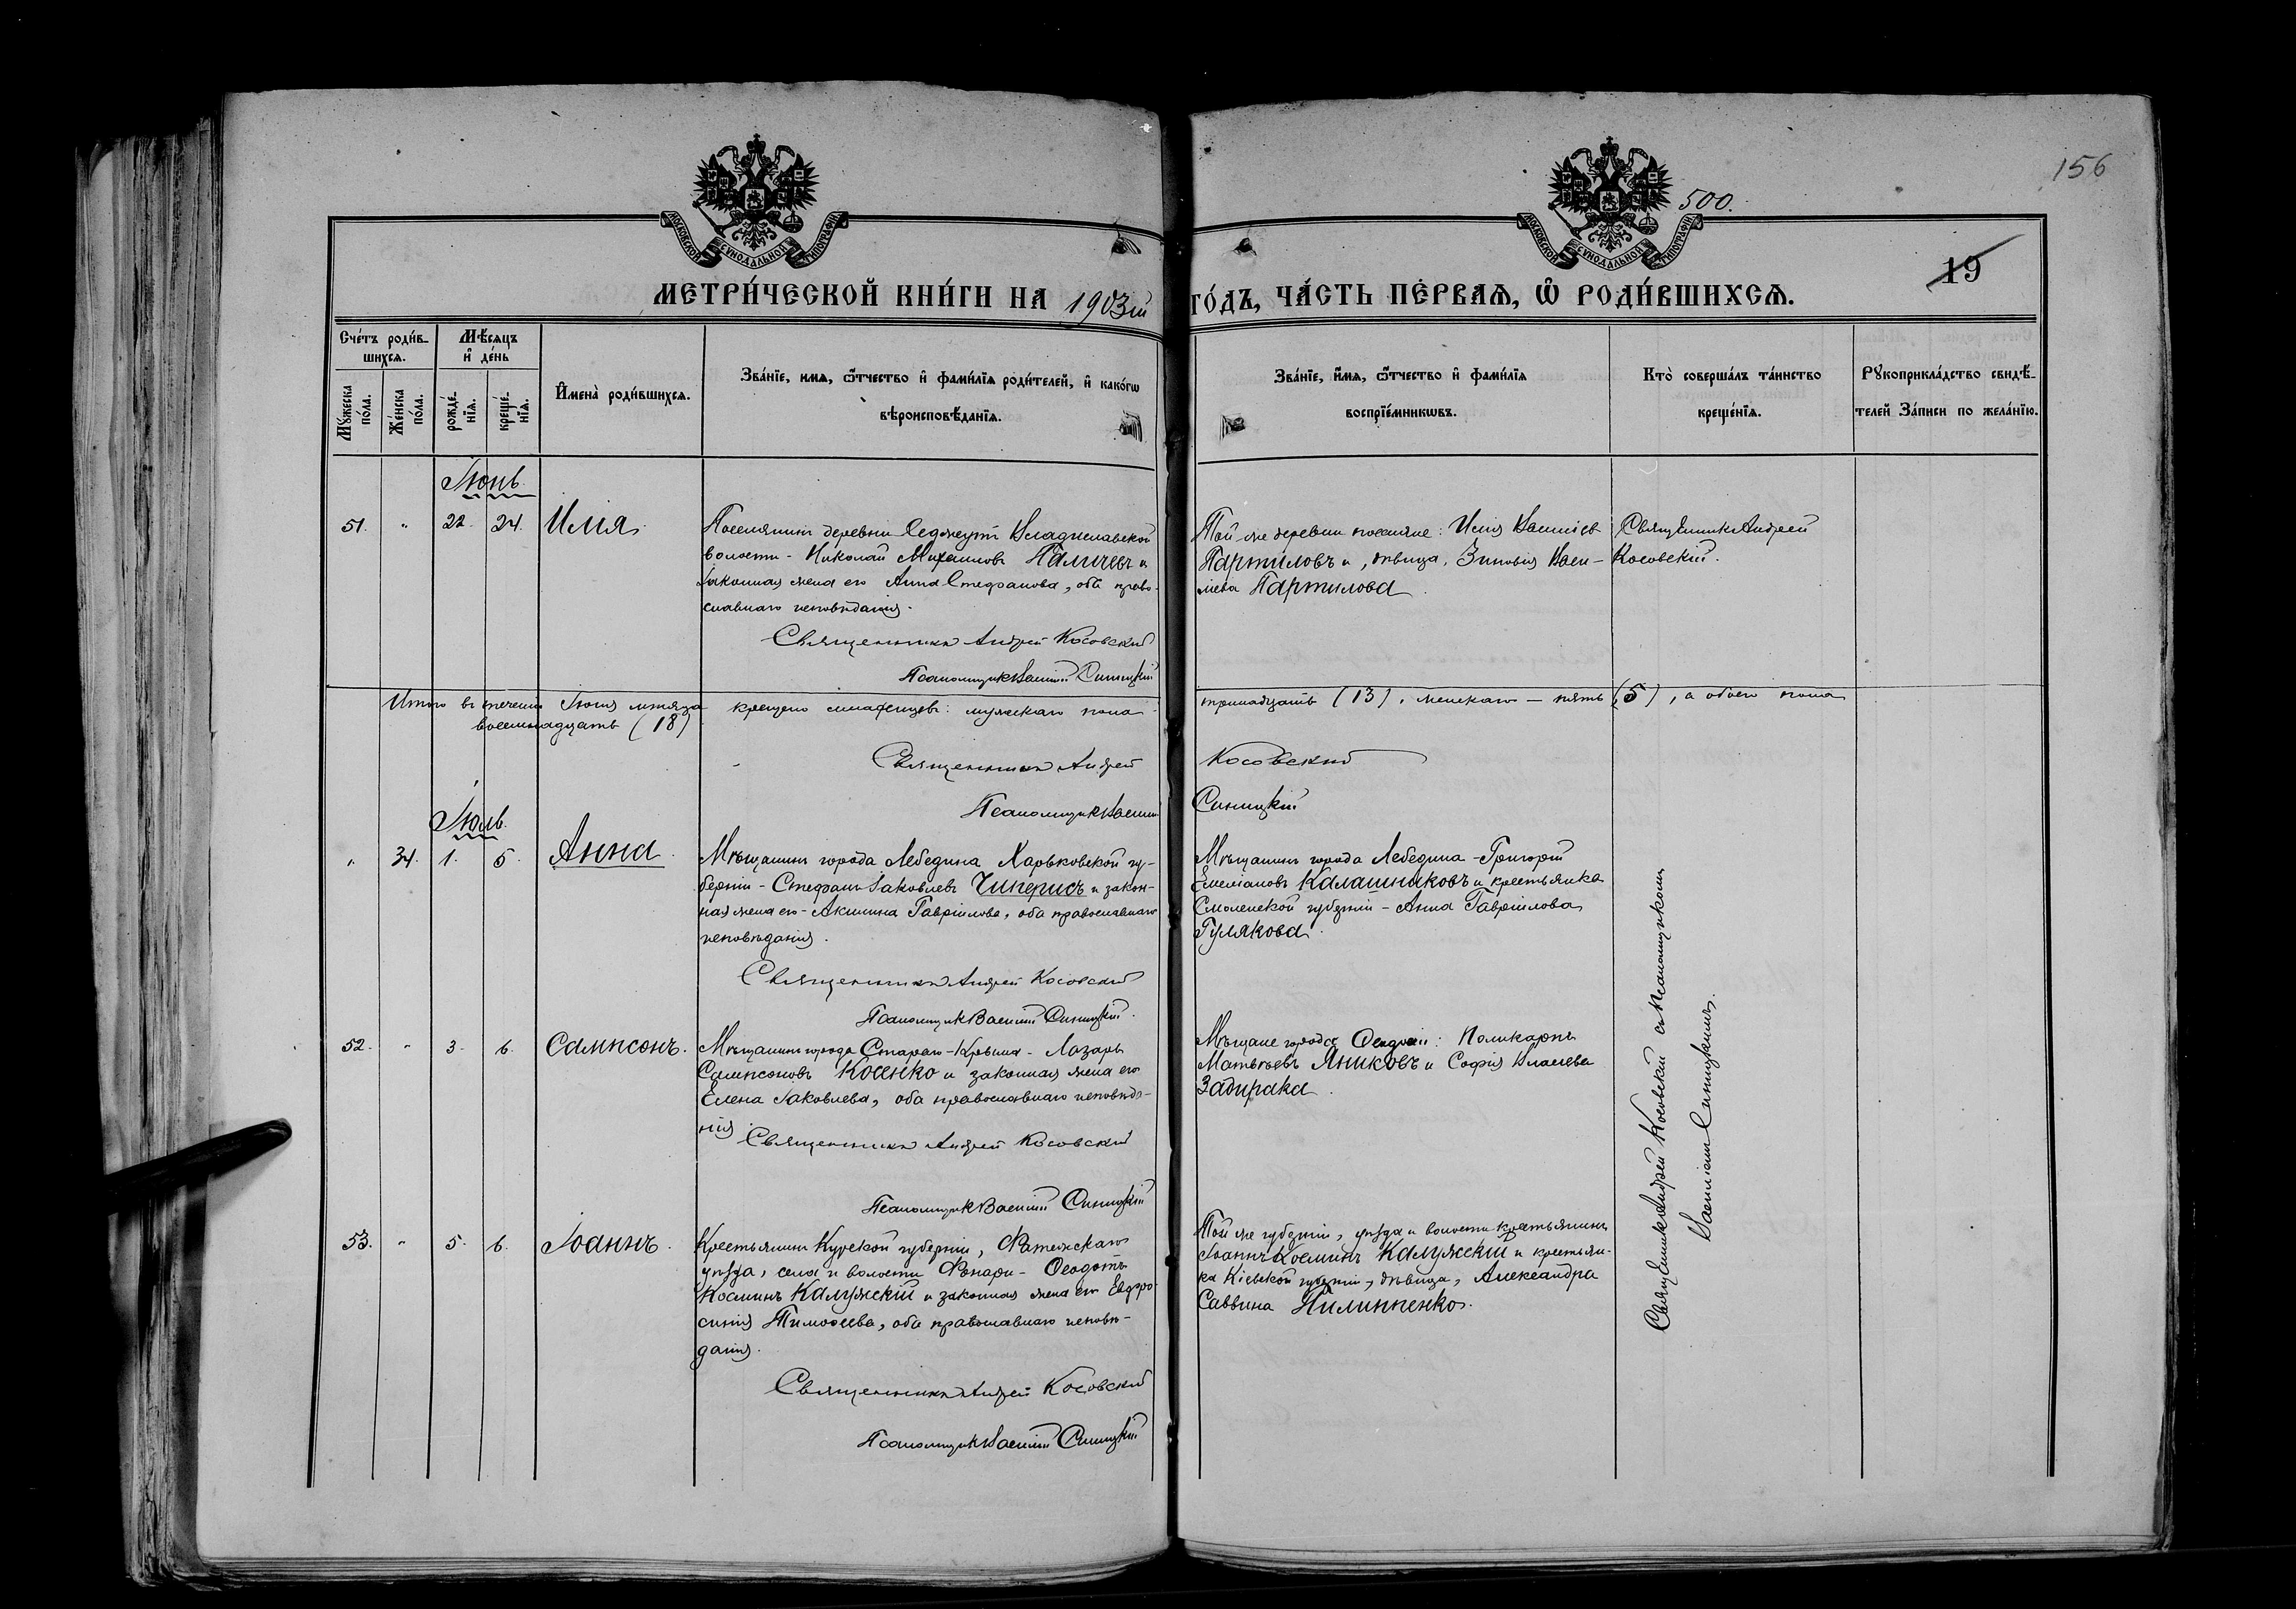 156
500.
19
МОСКОВСКОЙ СѴНОДАЛЬНОЙ ТИПОГРАФІИ
МОСКОВСКОЙ СѴНОДАЛЬНОЙ ТИПОГРАФІИ
МЕТРИ́ЧЕСКОЙ КНИ́ГИ НА 1903й ГО́ДЪ, ЧА́СТЬ ПЕ́РВАѦ, Ѽ РОДИ́ВШИХСѦ.
Сче́тъ роди́в-
шихсѧ.
Мꙋ́жеска по́ла.
Же́нска по́ла.
Мѣ́сѧцъ
и҆ де́нь
рожде́-
нїѧ.
креще́-
нїѧ.
И҆мена̀ роди́вшихсѧ.
Зва́нїе, имѧ, ѻ҆́тчество и҆ фами́лїѧ роди́телей, и҆ како́гѡ
вѣроисповѣ́данїѧ.
Зва́нїе, и҆́мѧ, ѻ҆́тчество и҆ фами́лїѧ
воспрїе́мникѡвъ.
Кто̀ соверша́лъ та́инство
креще́нїѧ.
Рꙋкоприкла́дство свидѣ́-
телей За́писи по жела́нїю.
Іюнь.
51. " 22. 24. Илія.
Поселянинъ деревни Седжеутъ Владиславской
волости - Николай Михаиловъ Паличевъ и
законная жена его Анна Стефанова, оба право-
славнаго исповѣданія.
Священникъ Андрей Косовскій
Псаломщикъ Василій Синицкій
Той же деревни поселяне: Илія Василіев
Партиловъ и, дѣвица, Зиновія Васи-
лиева Партилова
Священникъ Андрей
Косовскій.
Итого въ теченіи Іюня мѣсяца крещено младенцевъ: мужескаго пола - тринадцать (13), женскаго - пять (5), а обоего пола
восемнадцать (18)
Священникъ Андрей Косовскій
Псаломщикъ Василій Синицкій
Іюль.
" 34. 1. 5. Анна.
Мѣщанинъ города Лебедина Харьковской гу-
берніи - Стефанъ Іаковлевъ Чиперисъ и закон-
ная жена его - Акилина Гавріилова, оба православнаго
исповѣданія.
Священникъ Андрей Косовскій
Псаломщикъ Василій Синицкій.
Мѣщанинъ города Лебедина - Григорій
Емеліановъ Калашниковъ и крестьянка
Смоленской губерніи - Анна Гавріилова
Гулякова.
52. " 3. 6. Сампсонъ.
Мѣщанинъ города Стараго-Крыма - Лазарь
Сампсоновъ Косенко и законная жена его
Елена Іаковлева, оба православнаго исповѣда-
нія.
Священникъ Андрей Косовскій
Псаломщикъ Василій Синицкій
Мѣщане города Ѳеодосіи: Поликарпъ
Матѳеевъ Яниковъ и Софія Власіева
Задирака.
53. " 5. 6. Іоаннъ.
Крестьянинъ Курской губерніи, Фатежскаго
уѣзда, села и волости Фонари - Ѳеодотъ
Косминъ Калужскій и законная жена его Евфро-
синія Тимоѳеева, оба православнаго исповѣ-
данія.
Священникъ Андрей Косовскій
Псаломщикъ Василій Синицкій
Той же губерніи, уѣзда и волости крестьянинъ
Іоаннъ Косминъ Калужскій и крестьян-
ка Кіевской губерніи, дѣвица, Александра
Саввина Пилипенко.
Священникъ Андрей Косовскій съ Псаломщикомъ
Василіемъ Синицкимъ.